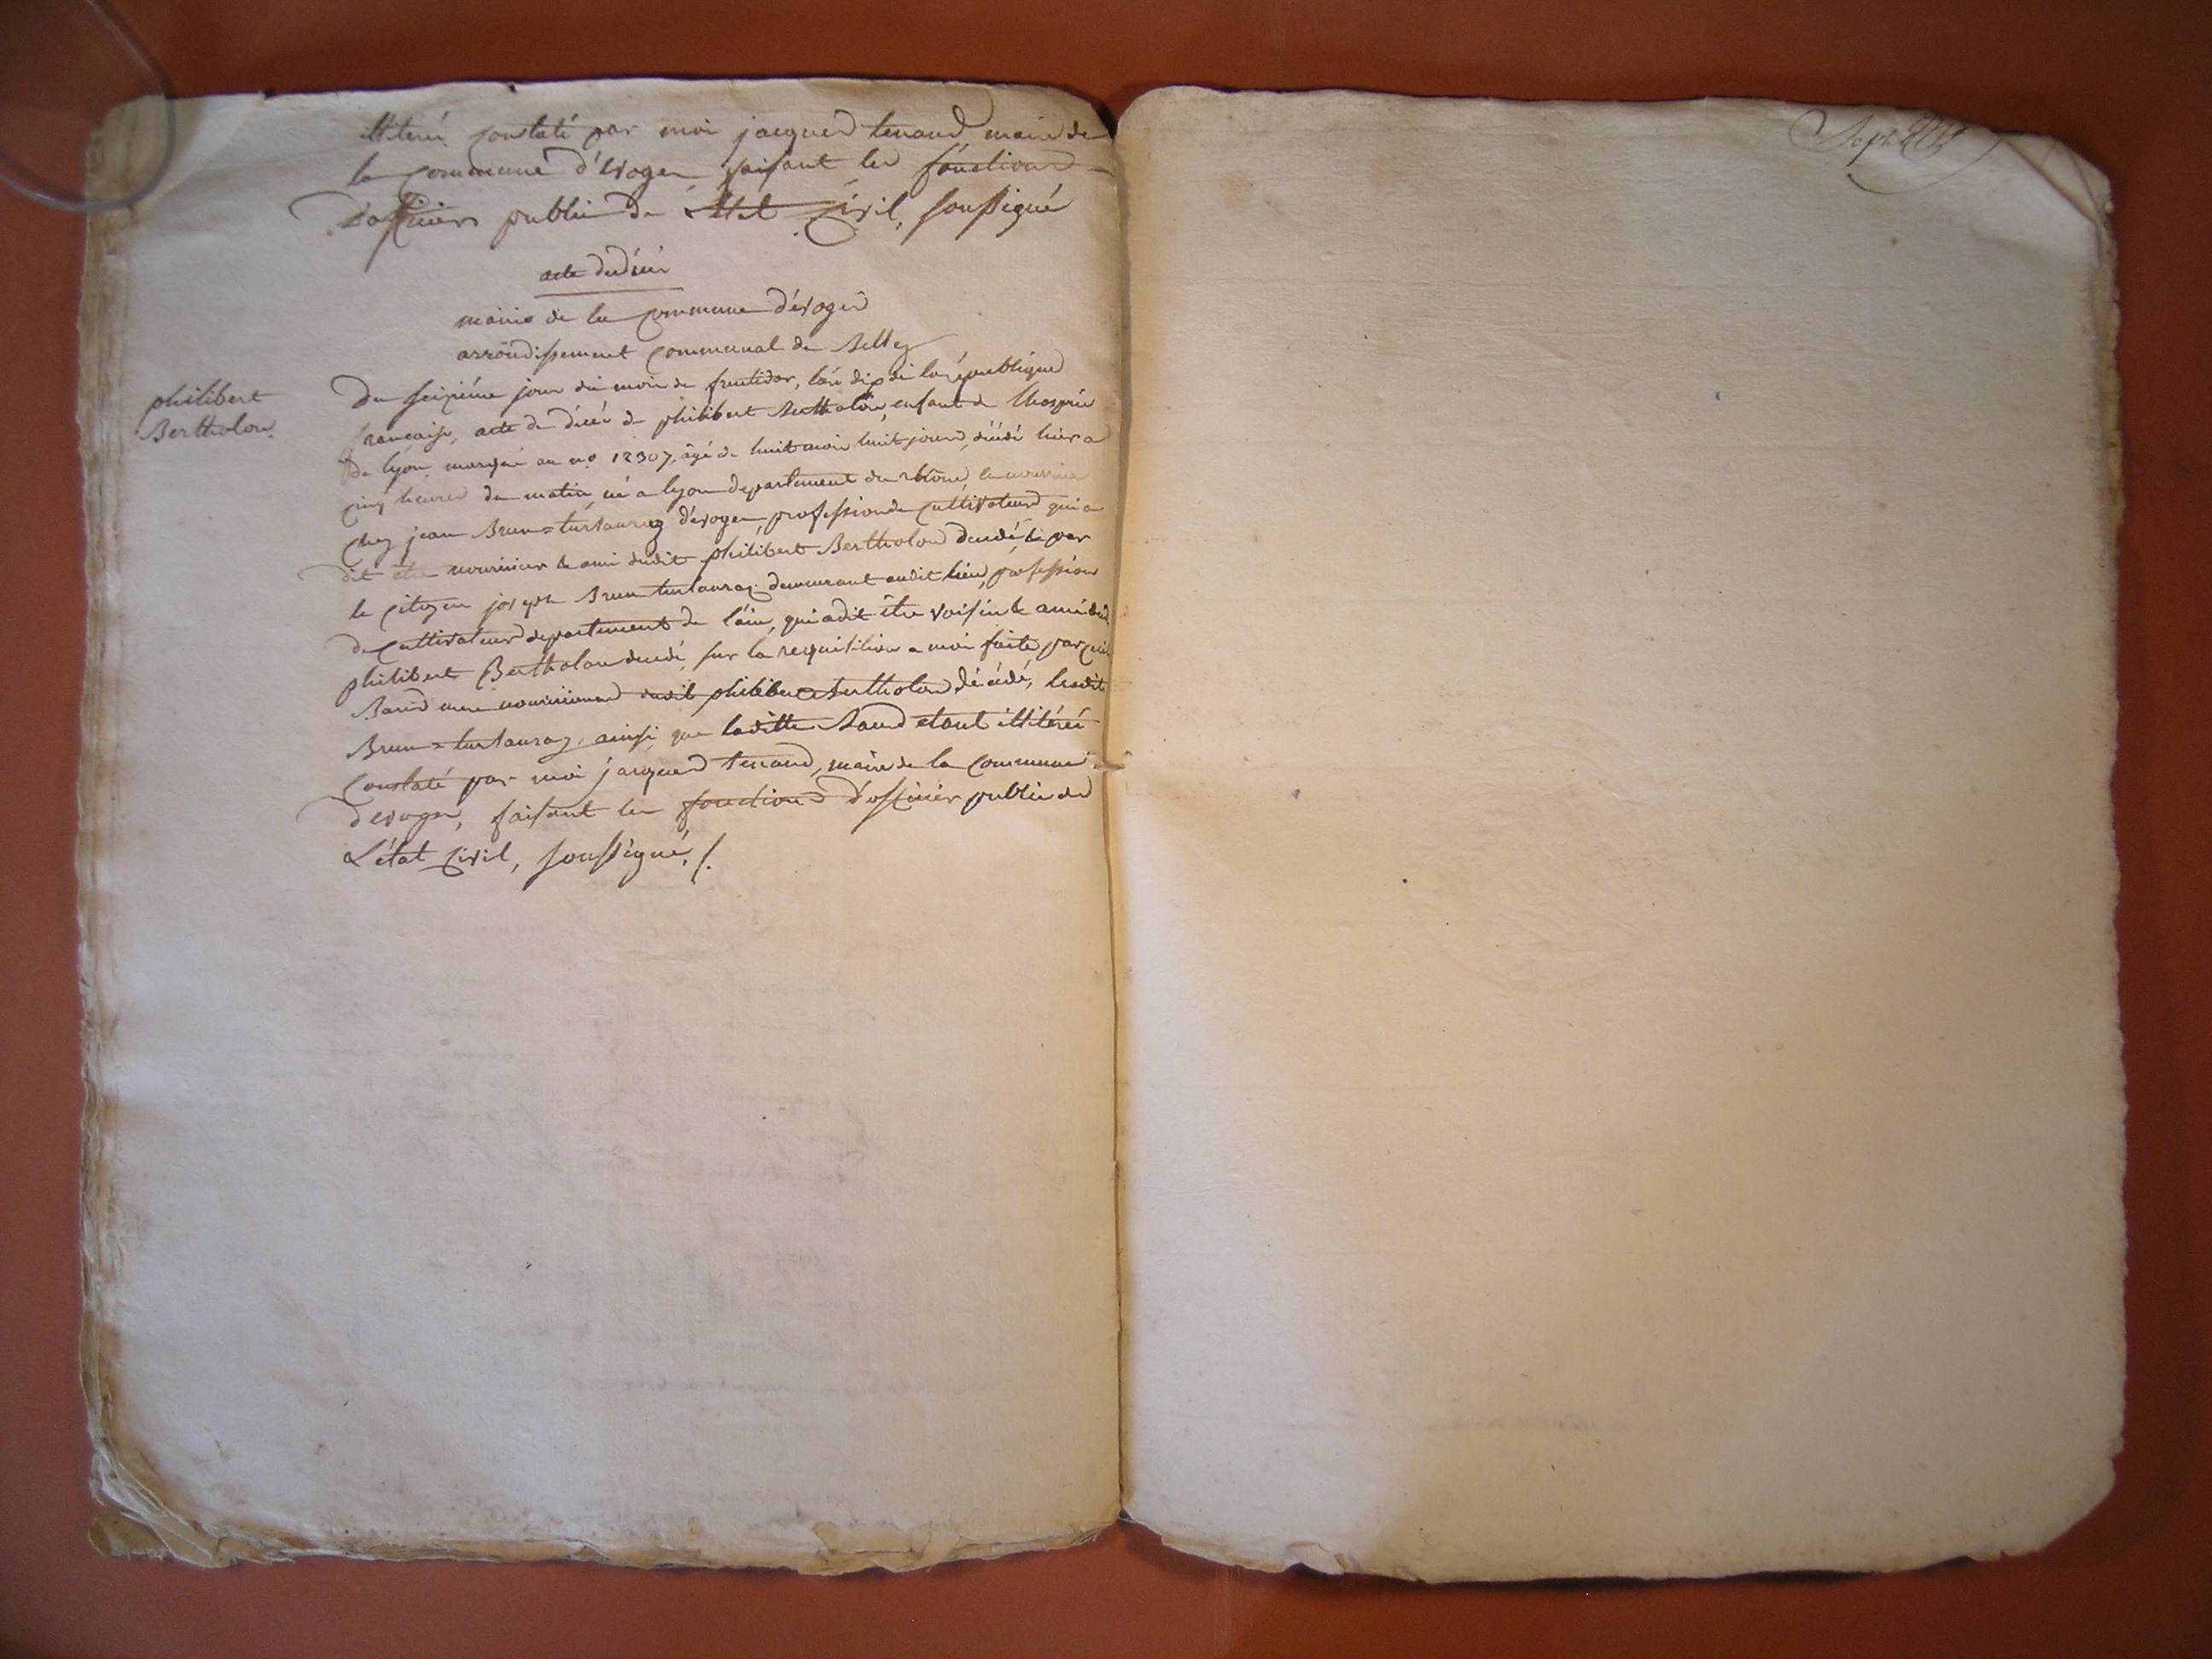 illiteré constaté par moi jacques tenand maire de
la commune d'évoges faisant les fonctions
d'officiers public de l'état Civil, soussigné
acte de décés
mairie de la Commune d'évoges
arrondissement Communal de Belley
philibert
Bertholon
Du seizième jour du mois de fructidor, l'an dix de la république
française, acte de décés de philibert Bertholon, enfant de l'hospice
de lyon, marqué au no. 12307, âgé de huit mois huit jours, décédé hier a
cinq heures du matin, né a lyon departement du rhône, en nourrice
Chez jean Brun= d'évoges, profession de Cultivateur qui a
dit être nourricier & ami dudit philibert Bertholon decedé & par
le Citoyen joseph Brun demeurant audit lieu, profession
de Cultivateur departement de l'ain, qui a dit être voisin & ami dud
philibert Bertholon decedé, sur la requisition a moi faite par
mere nourriciere dudit philibert Bertholon, décédé, lesdits
Brun= ainsi que laditte etant illitérés
Constaté par moi jacques tenand, maire de la Commune
d'evoges, faisant les fonctions d'officier public de
L'état Civil, soussigné, /.